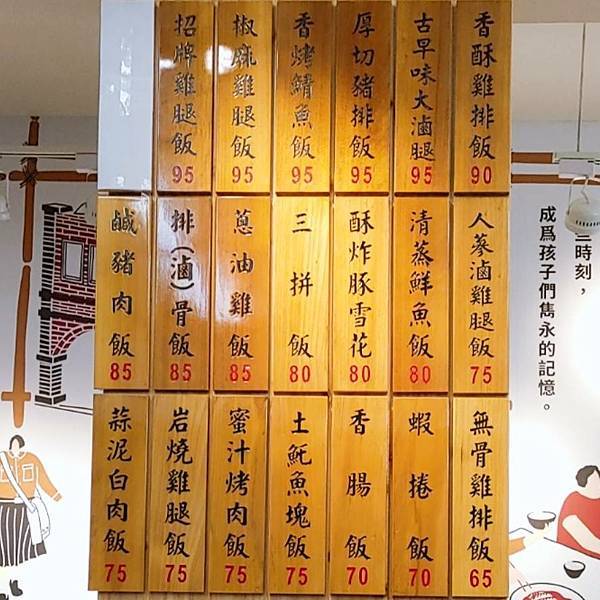 香酥雞排飯 90
古早味大滷腿 95
厚切豬排飯 95
香烤鯖魚飯 95
椒麻雞腿飯 95
招牌雞腿飯 95
人蔘滷雞腿飯 75
清蒸鮮魚飯 80
酥炸豚雪花 80
三拼飯 80
蔥油雞飯 85
排(滷)骨飯 85
鹹豬肉飯 85
無骨雞排飯 65
蝦捲飯 70
香腸飯 70
土魠魚塊飯 75
蜜汁烤肉飯 75
岩燒雞腿飯 75
蒜泥白肉飯 75
時刻，
成爲孩子們雋永的記憶。